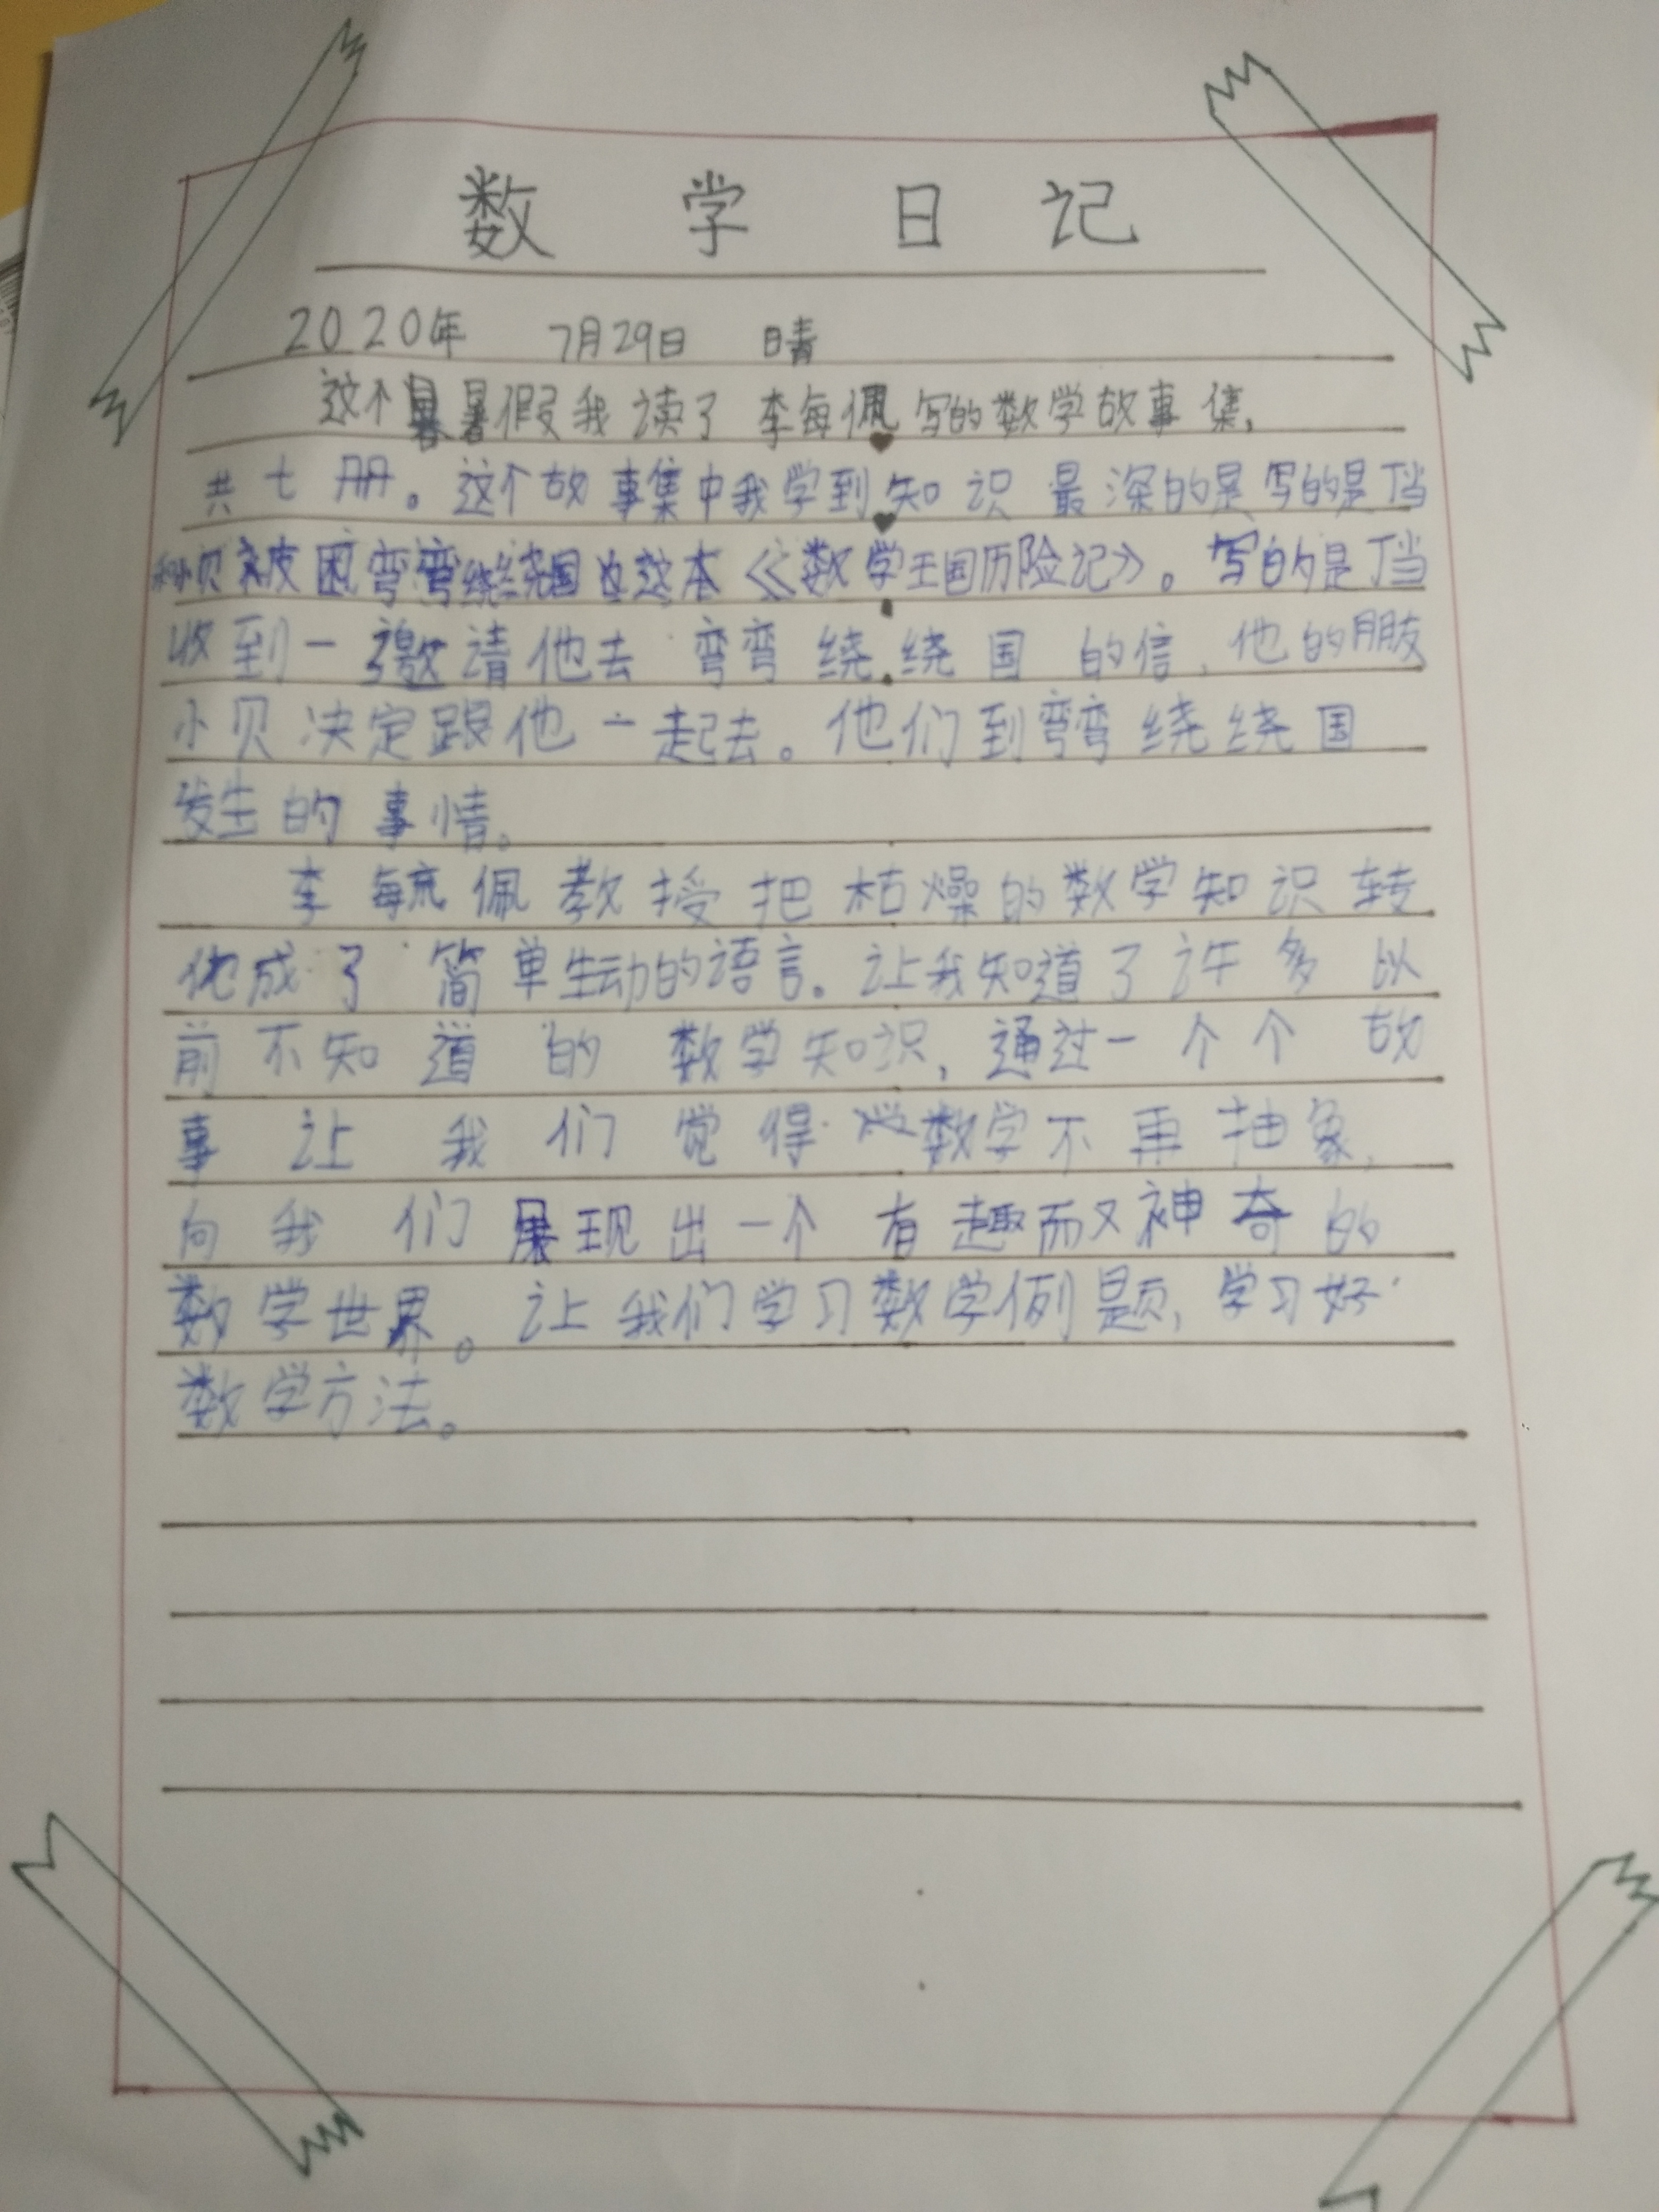 数学日记
2020年 7月29日 晴
这个暑假我读了李每佩写的数学故事集,
共七册。这个故事集中我学到知识最深的是写的是丁当
和小贝被困弯弯绕绕国的这本《数学王国历险记》。写的是丁当
收到一邀请他去弯弯绕绕国的信,他的朋友
小贝决定跟他一起去。他们到弯弯绕绕国
发生的事情。
李毓佩教授把枯燥的数学知识转
化成了简单生动的语言。让我知道了许多以
前不知道的数学知识,通过一个个故
事让我们觉得数学不再抽象,
向我们展现出一个有趣而又神奇的
数学世界。让我们学习数学例题,学习好
数学方法。